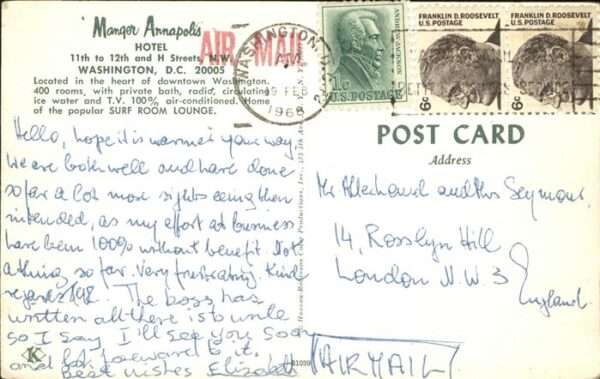 Manger Annapolis
HOTEL
11th to 12th and H Streets, N.W.
WASHINGTON, D.C. 20005
Located in the heart of downtown Washington.
400 rooms, with private bath, radio, circulating
ice water and T.V. 100% air-conditioned. Home
of the popular SURF ROOM LOUNGE.
AIR MAIL
WASHINGTON, D.C.
19 FEB
1968
ANDREW JACKSON
1c
U.S. POSTAGE
FRANKLIN D. ROOSEVELT
U.S. POSTAGE
6c
FRANKLIN D. ROOSEVELT
U.S. POSTAGE
6c
Hello, hope it is warmer your way.
We are both well and have done
so far a lot more sights eeing then
intended, as my effort at business
have been 100% without benefit. Not
a thing, so far. Very frustrating. Kind
regards
The boss has
written all there is to write
so I say I'll see you soon
and look forward to it.
best wishes Elizabeth
K
POST CARD
Address
Mr and Mrs Seymour,
14, Rosslyn Hill
London N.W. 3
England.
AIRMAIL